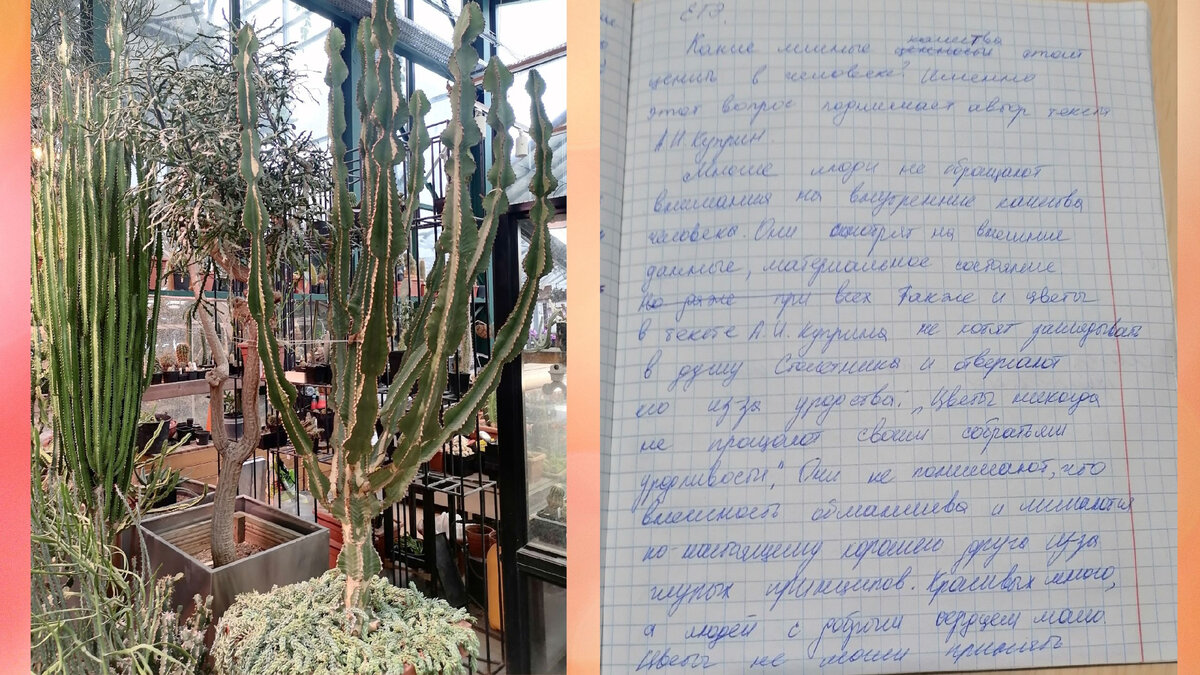 ЕГЭ.
Какие личные качества стоит
ценить в человеке? Именно
этот вопрос поднимает автор текста
А.И. Куприн.
Многие люди не обращают
внимания на внутренние качества
человека. Они смотрят на внешние
данные, материальное состояние
но даже при всех Также и цветы
в тексте А.И. Куприна не хотят заглядывать
в душу Столетника и отвергают
его из за уродства. „Цветы никогда
не прощают своим собратьям
уродливости". Они не понимают, что
внешность обманчива и лишаются
по-настоящему хорошего друга из за
глупых принципов. Красивых много,
а людей с добрым сердцем мало.
Цветы не могли принять